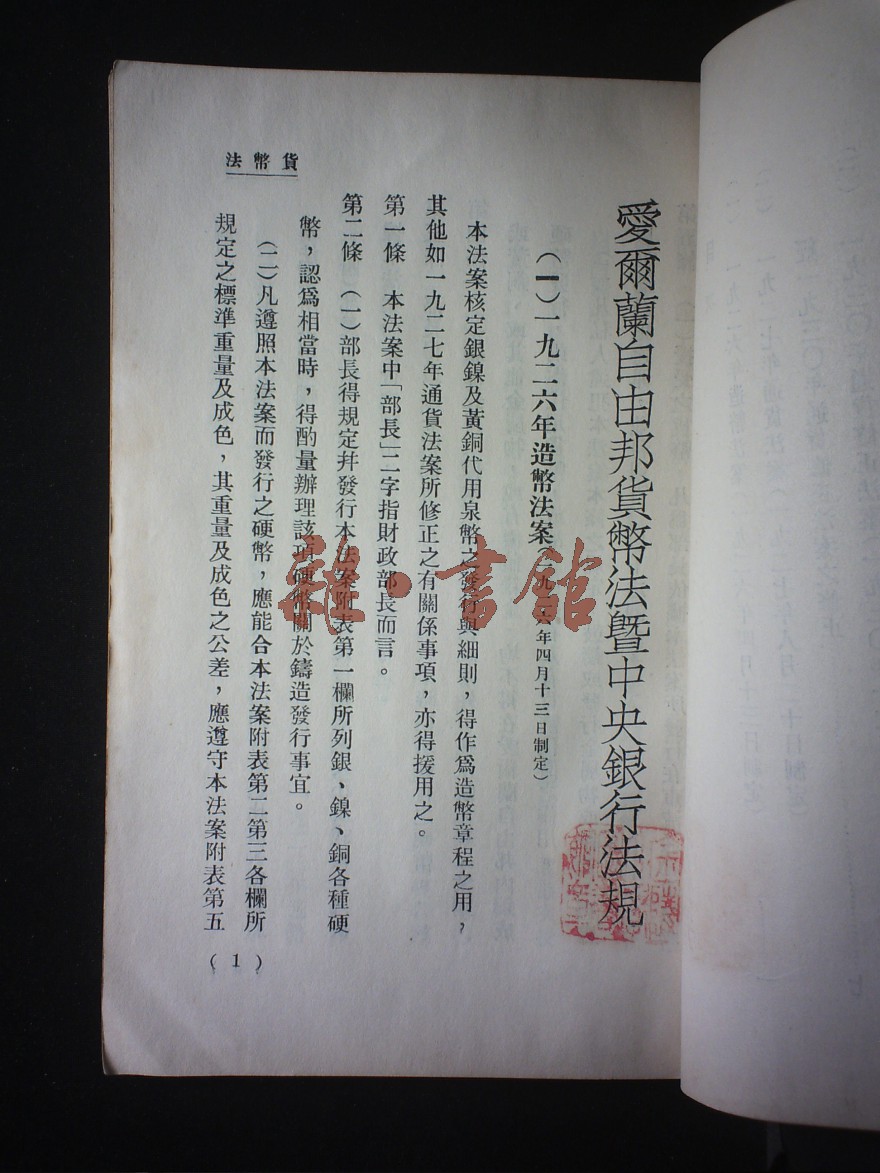 愛爾蘭自由邦貨幣法暨中央銀行法規
(一)一九二六年造幣法案(一九 六年四月十三日制定)
本法案核定銀鎳及黃銅代用泉幣之發行與細則，得作爲造幣章程之用，
其他如一九二七年通貨法案所修正之有關係事項，亦得援用之。
第一條　本法案中「部長」二字指財政部長而言。
第二條　(一)部長得規定幷發行本法案附表第一欄所列銀、鎳、銅各種硬
幣，認爲相當時，得酌量辦理該項硬幣關於鑄造發行事宜。
(二)凡遵照本法案而發行之硬幣，應能合本法案附表第二第三各欄所
規定之標準重量及成色，其重量及成色之公差，應遵守本法案附表第五
貨幣法
(1)
雜·書館